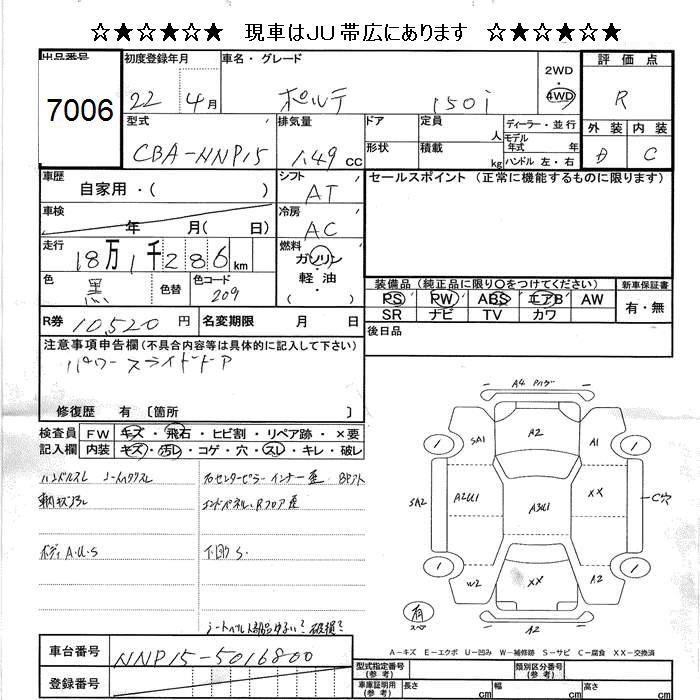 ☆★☆★☆★☆ 現車はJU帯広にあります ☆★☆★☆★☆
出品番号 初度登録年月 車名・グレード 評価点
7006 22 4月 ポルテ 150i 2WD 4WD R
型式 排気量 ドア 定員 人 ディーラー・並行 外装 内装
CBA-NNP15 1.49 cc 形状 積載 kg モデル年式 年 ハンドル 左・右 C
車歴 自家用・( ) シフト AT セールスポイント (正常に機能するものに限ります)
車検 年 月( 日) 冷房 AC
走行 18万1千286km 燃料 ガソリン・軽油
色 黒 色替 色コード 209 装備品 (純正品に限り〇をつけてください) 新車保証書
PS PW ABS エアB AW 有・無
SR ナビ TV カワ
R券 10,520円 名変期限 月 日 後日品
注意事項申告欄(不具合内容等は具体的に記入して下さい)
パワースライドドア
修復歴 有 〔箇所 〕
検査員 FW キズ・飛石・ヒビ割・リペア跡・×要
記入欄 内装 キズ・汚レ・コゲ・穴・スレ・キレ・破レ
ハンドルスレ シートハゲクスレ
Rセンターピラーインナー歪
ボディA.U.S 下回りS.
A4
SA1 A2 A1
SA2 A2U1 A3U1 XX C穴
W2 XX A2
有 スペア A2
A-キズ E-エクボ U-凹み W-補修跡 S-サビ C-腐食 XX-交換済
車台番号 NNP15-5016800
登録番号
型式指定番号(参考) 類別区分番号(参考)
車庫証明用(参考) 長さ cm 幅 cm 高さ cm